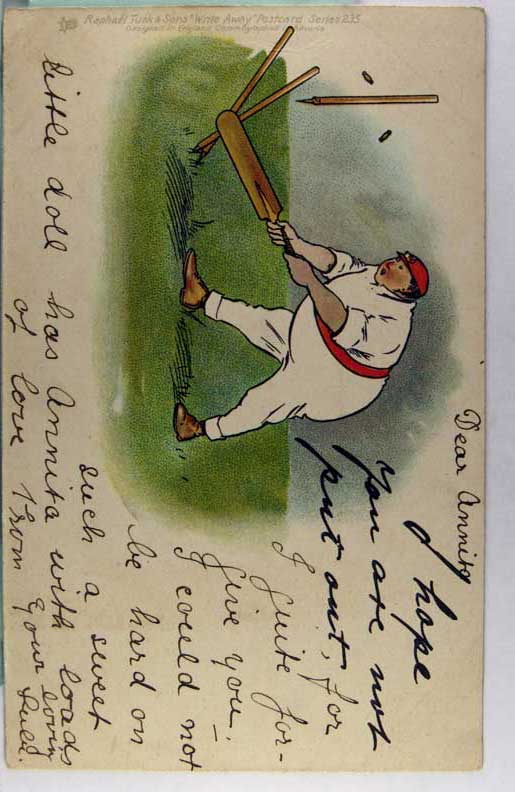 Raphael Tuck & Sons "Write Away" Postcard Series 235
Designed in England
Dear Annita
I hope
you are not
put out, for
I quite for-
give you!
I could not
be hard on
such a sweet
little doll has Annita with loads
of love from
Your lovin